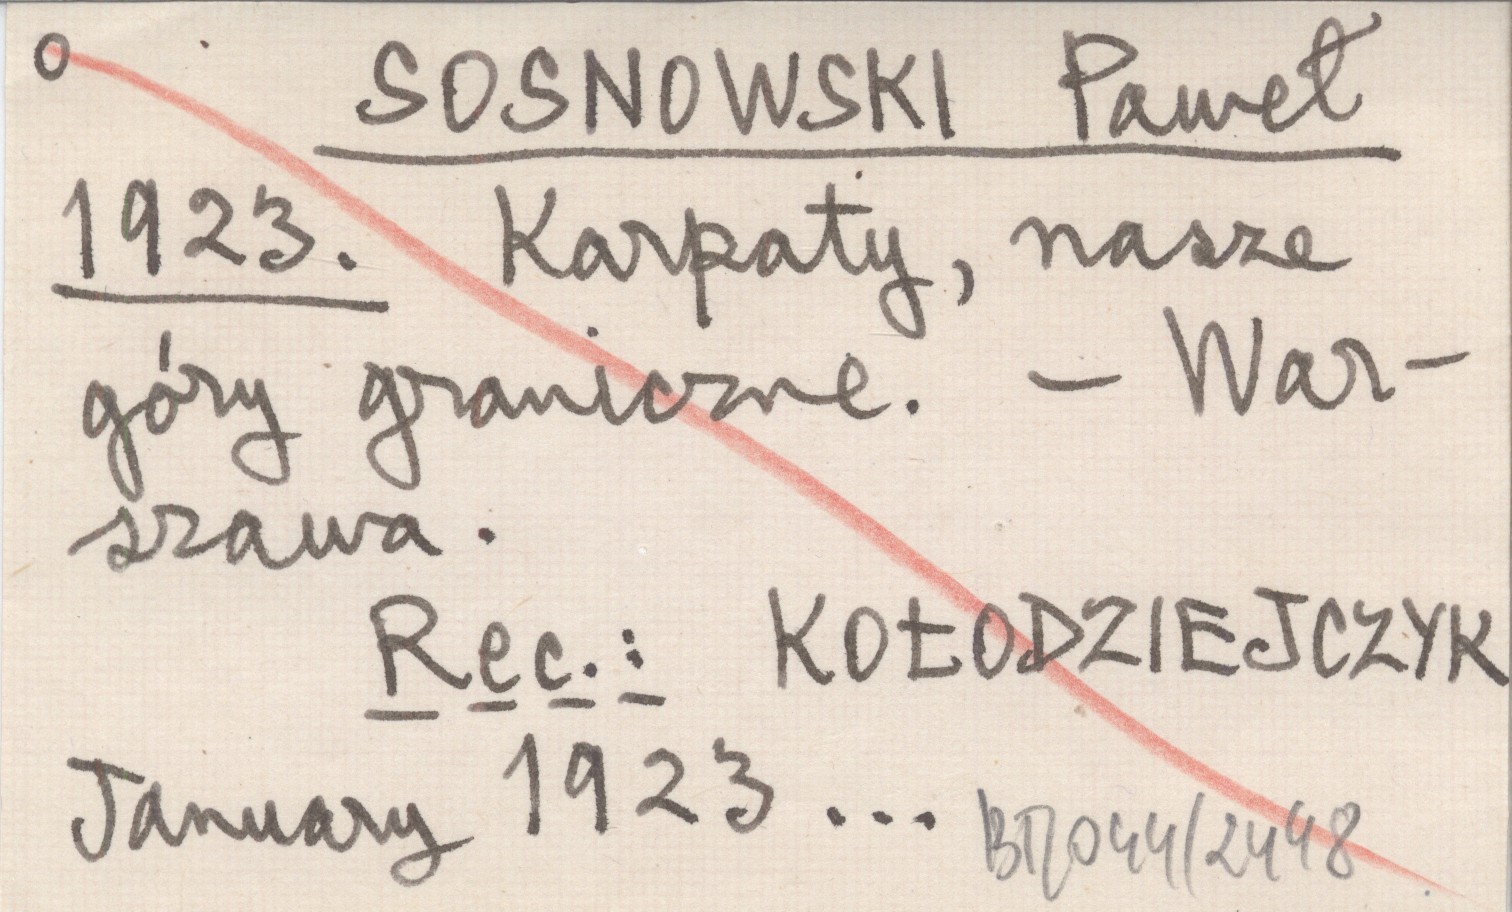 SOSNOWSKI Paweł
1923. Karpaty, nasze
góry graniczne. – War-
szawa.
Rec.: KOŁODZIEJCZYK
January 1923...
044/2448